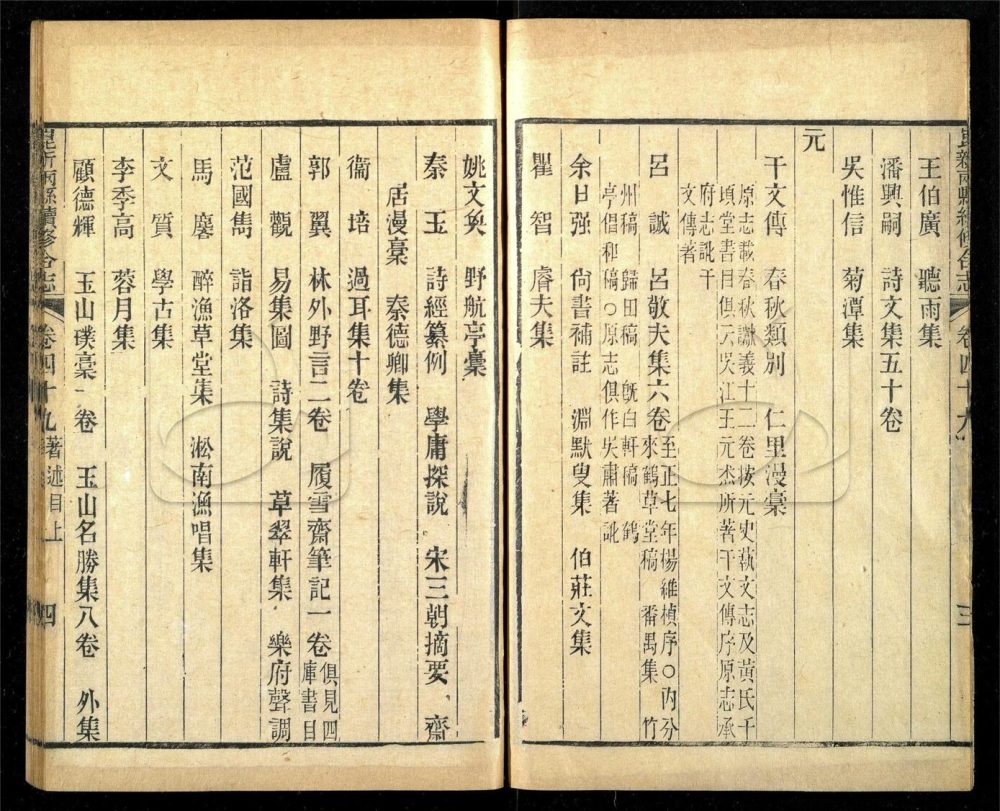 崑新兩縣續修合志 卷四十九 三
王伯廣 聽雨集
潘興嗣 詩文集五十卷
吳惟信 菊潭集
元
干文傳 春秋類別 仁里漫稾
原志載春秋讞義十二卷按元史蓺文志及黃氏千
頃堂書目俱云吳江王元杰所著干文傳序原志承
府志訛干
文傳著
呂 誠 呂敬夫集六卷
至正七年楊維楨序○內分
來鶴草堂稿 番禺集 竹
州稿 歸田稿 旣白軒稿 鶴
亭倡和稿○原志俱作吳肅著訛
余日强 尙書補註 淵默叟集 伯莊文集
瞿 智 睿夫集
姚文奐 野航亭稾
秦 玉 詩經纂例 學庸探說 宋三朝摘要 齋
居漫稾 秦德卿集
衞 培 過耳集十卷
郭 翼 林外野言二卷 履雪齋筆記一卷
俱見四
庫書目
盧 觀 易集圖 詩集說 草翠軒集 樂府聲調
范國雋 詣洛集
馬 麐 醉漁草堂集 淞南漁唱集
文 質 學古集
李季高 蓉月集
顧德輝 玉山璞稾一卷 玉山名勝集八卷 外集
崑新兩縣續修合志 卷四十九 著述目上 四